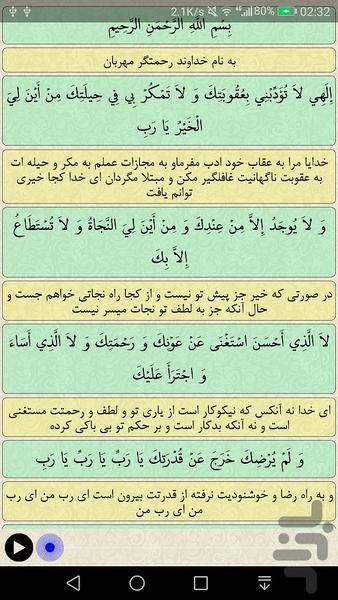 2.1K/s 4G 80% 02:32
بِسْمِ اللَّهِ الرَّحْمَنِ الرَّحِيمِ
به نام خداوند رحمتگر مهربان
إِلَهِي لاَ تُؤَدِّبْنِي بِعُقُوبَتِكَ وَ لاَ تَمْكُرْ بِي فِي حِيلَتِكَ مِنْ أَيْنَ لِيَ
الْخَيْرُ يَا رَبِ
خدایا مرا به عقاب خود ادب مفرماو به مجازات عملم به مکر و حیله ات
به عقوبت ناگهانیت غافلگیر مکن و مبتلا مگردان ای خدا کجا خیری
توانم یافت
وَ لاَ يُوجَدُ إِلاَّ مِنْ عِنْدِكَ وَ مِنْ أَيْنَ لِيَ النَّجَاةُ وَ لاَ تُسْتَطَاعُ
إِلاَّ بِكَ
در صورتی که خیر جز پیش تو نیست و از کجا راه نجاتی خواهم جست و
حال آنکه جز به لطف تو نجات میسر نیست
لاَ الَّذِي أَحْسَنَ اسْتَغْنَى عَنْ عَوْنِكَ وَ رَحْمَتِكَ وَ لاَ الَّذِي أَسَاءَ
وَ اجْتَرَأَ عَلَيْكَ
ای خدا نه آنکس که نیکوکار است از یاری تو و لطف و رحمتت مستغنی
است و نه آنکه بدکار است و بر حکم تو بی باکی کرده
وَ لَمْ يُرْضِكَ خَرَجَ عَنْ قُدْرَتِكَ يَا رَبِّ يَا رَبِّ يَا رَبِ
و به راه رضا و خوشنودیت نرفته از قدرتت بیرون است ای رب من ای رب
من ای رب من